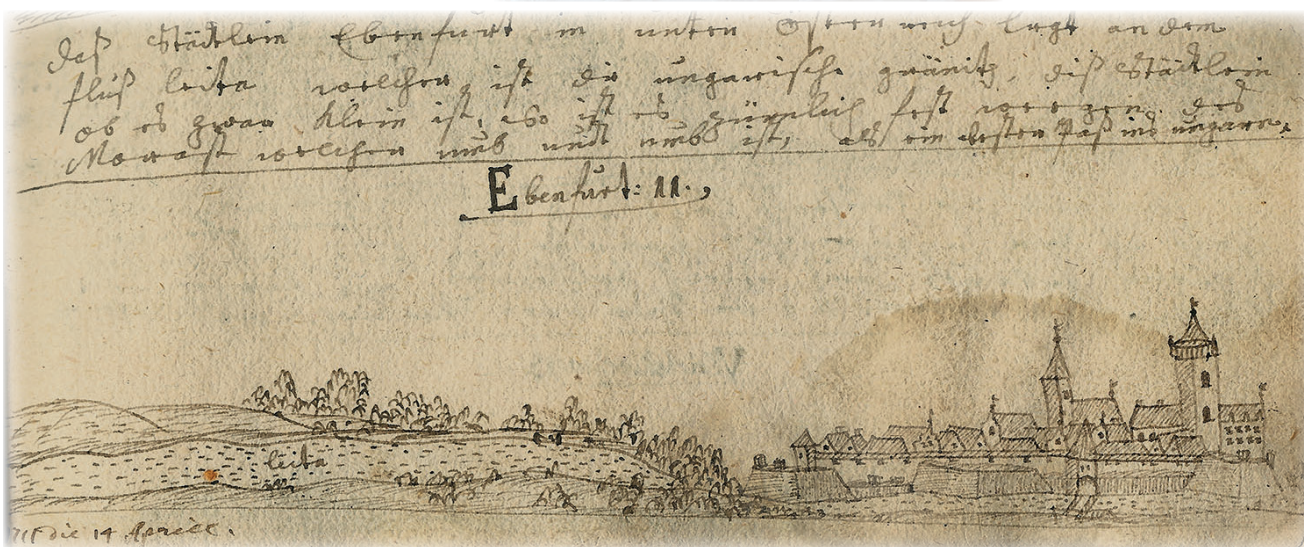 daß Städtlein Ebenfurt in unter Österreich ligt an dem
fluß leita welcher ist die ungarische gränitz, diß Städtlein
ob es zwar klein ist, so ist es zimmlich fest wegen des
Morast welcher umb undt umb ist, als ein bester Paß ins ungarn.
Ebenfurt: 11.
leita
die 14 Aprill.